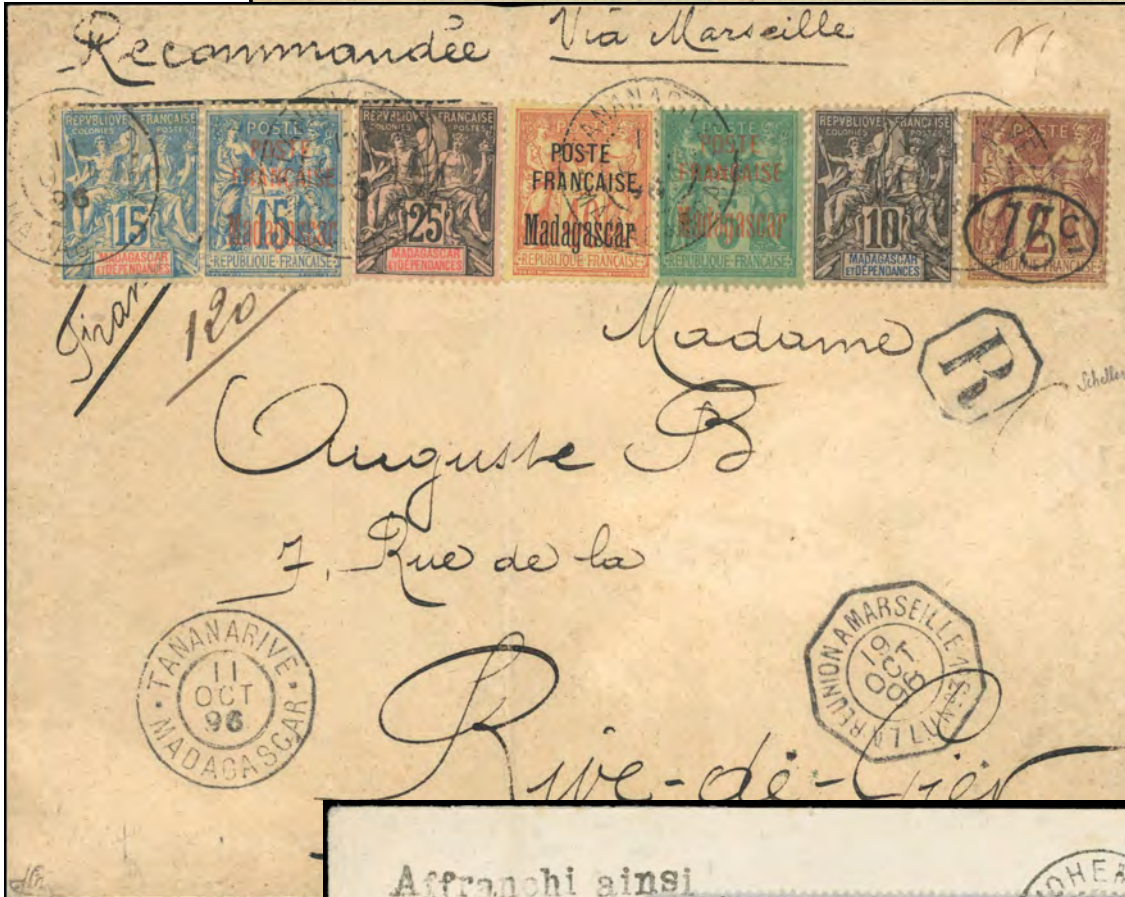 Recommandée Via Marseille
RÉPUBLIQUE FRANÇAISE
COLONIES POSTES
15
MADAGASCAR
ET DÉPENDANCES
POSTE
POSTE
FRANÇAISE
15
Madagascar
REPUBLIQUE FRANÇAISE
RÉPUBLIQUE FRANÇAISE
COLONIES POSTES
25
MADAGASCAR
ET DÉPENDANCES
POSTE
POSTE
FRANÇAISE
Madagascar
REPUBLIQUE FRANÇAISE
POSTE
POSTE
FRANÇAISE
5
Madagascar
REPUBLIQUE FRANÇAISE
RÉPUBLIQUE FRANÇAISE
COLONIES POSTES
10
MADAGASCAR
ET DÉPENDANCES
15c
2
REPUBLIQUE FRANÇAISE
120
Madame
R
Auguste B
7, Rue de la
TANANARIVE
11
OCT
96
MADAGASCAR
LA REUNION A MARSEILLE
19
OCT
96
Rive-de-Gier
Affranchi ainsi